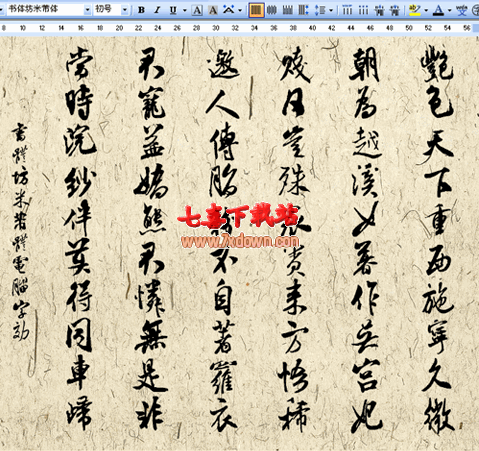 书体坊米芾体 初号 B I U A A
8 10 12 14 16 18 20 22 24 26 28 30 32 34 36 38 40 42 44 46 48 50 52 54 56
艷色天下重西施寧久微
朝為越溪女暮作吳宮妃
賤日豈殊眾貴來方悟稀
邀人傅脂不自著羅衣
君寵益嬌態君憐無是非
當時浣紗伴莫得同車歸
書體坊米芾體電腦字
七喜下载站
www.7xdown.com